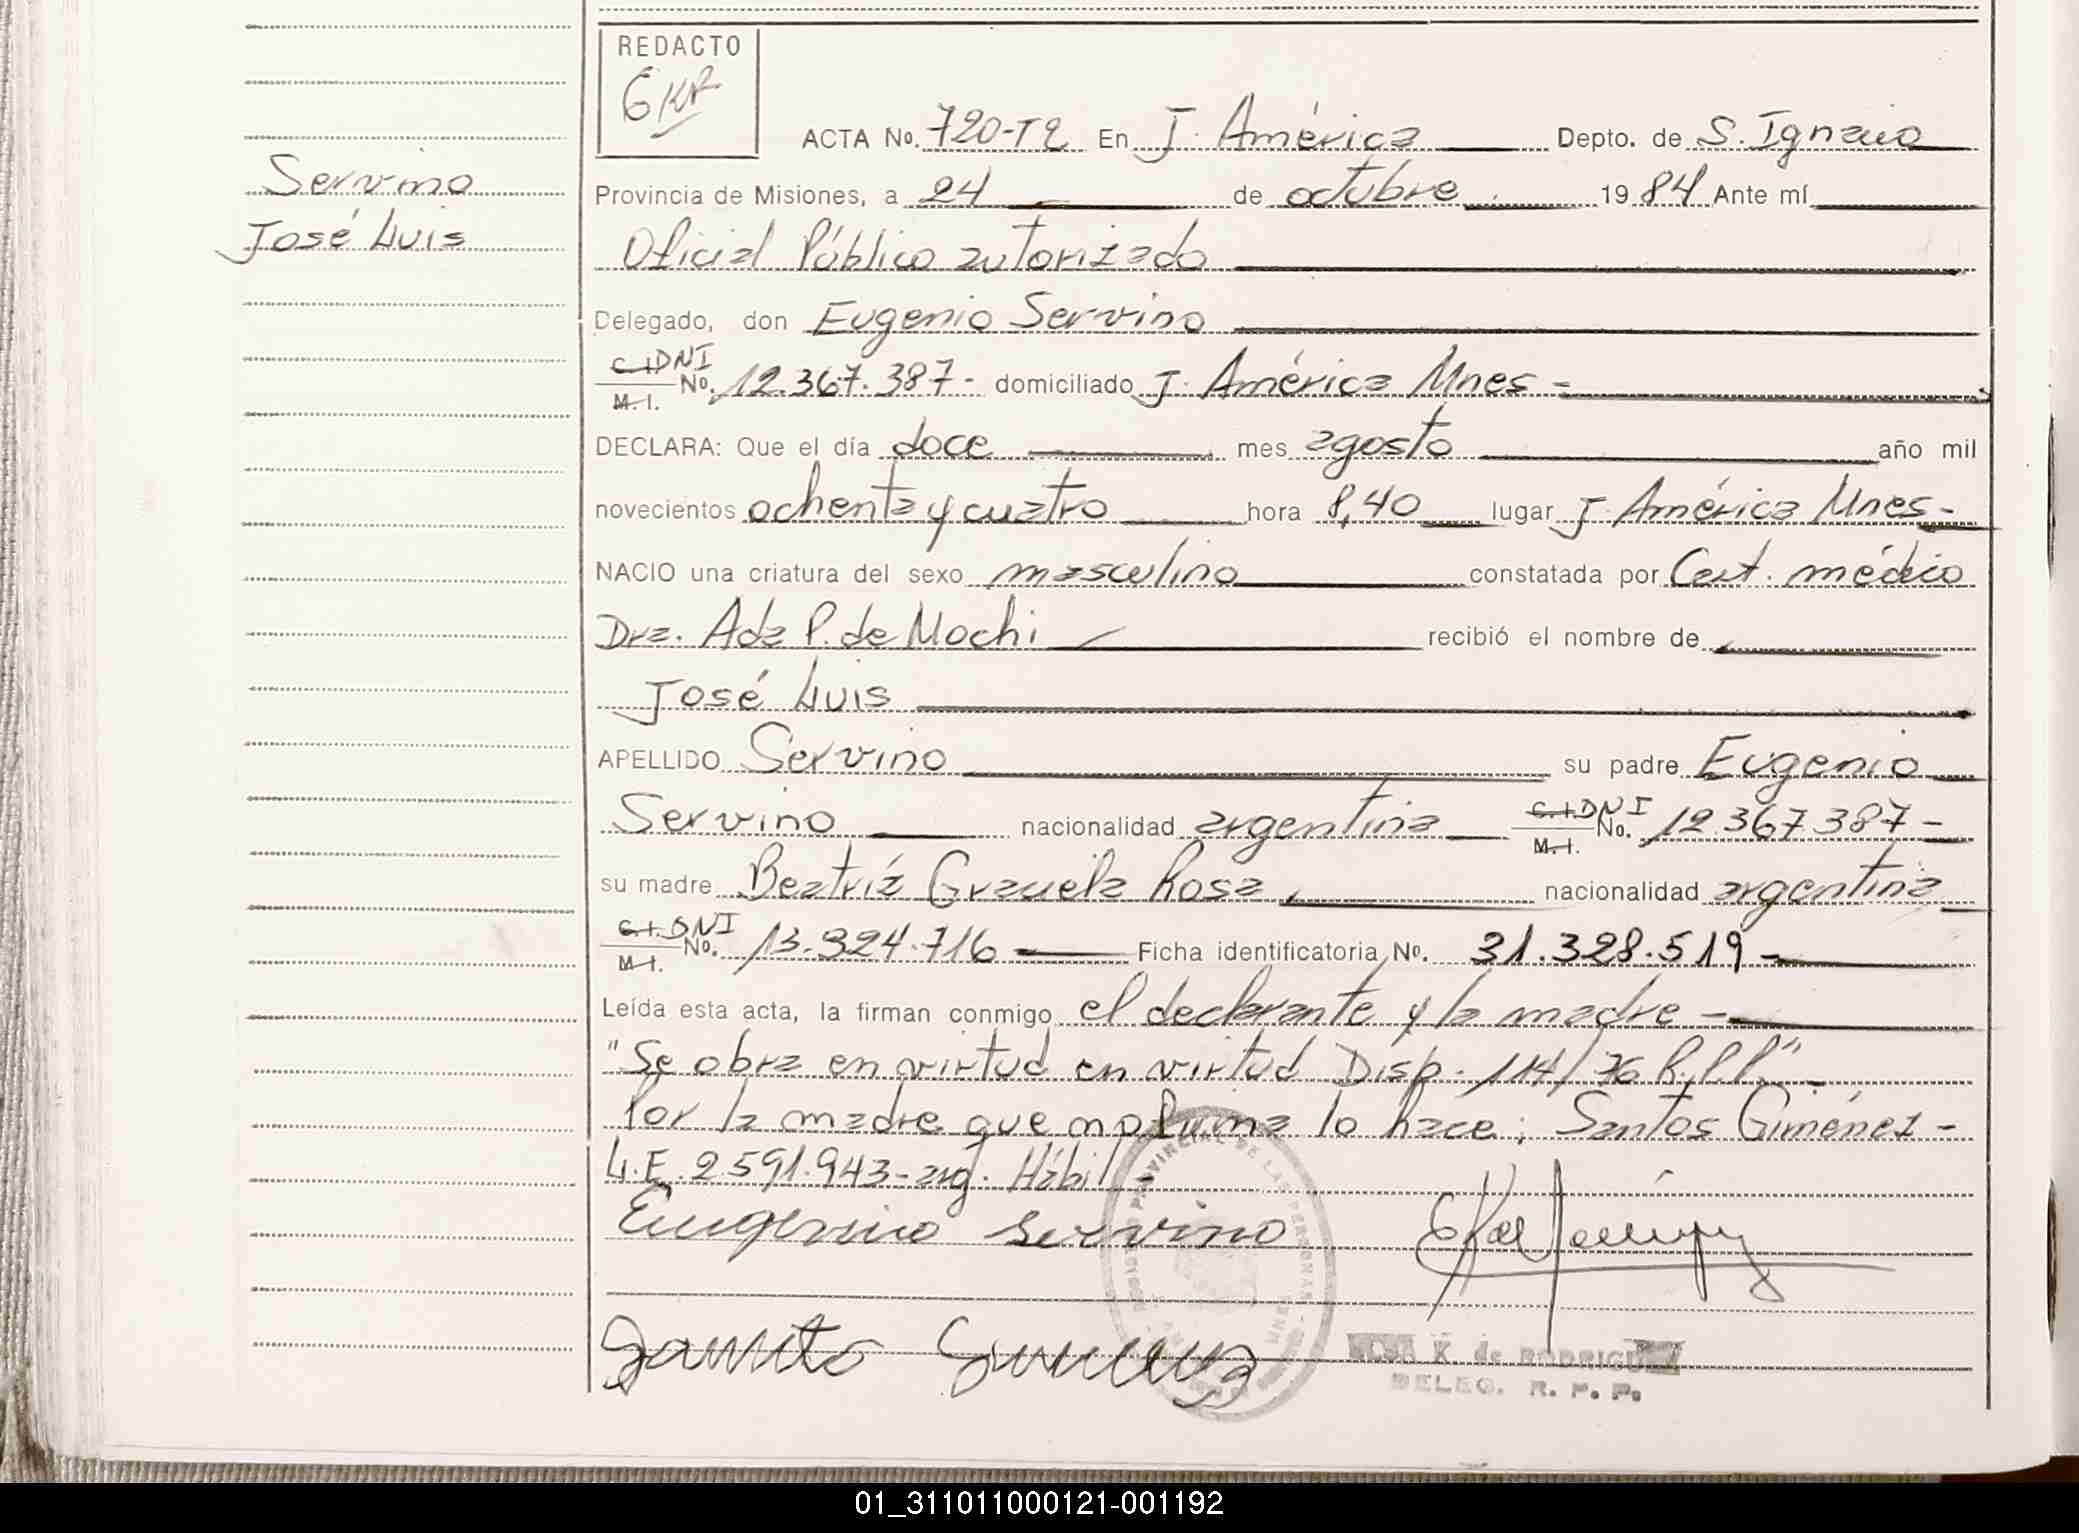 REDACTO
ACTA No. 720-T2 En J. América Depto. de S. Ignacio
Servino
José Luis
Provincia de Misiones, a 24 de octubre 1984 Ante mí
Oficial Público autorizado
Delegado, don Eugenio Servino
C.I. DNI
M.I. No. 12.367.387- domiciliado J. América Mnes-
DECLARA: Que el día doce mes agosto año mil
novecientos ochenta y cuatro hora 8,40 lugar J. América Mnes-
NACIO una criatura del sexo masculino constatada por Cert. médico
Dra. Ada P. de Mochi recibió el nombre de
José Luis
APELLIDO Servino su padre Eugenio
Servino nacionalidad argentina C.I. DNI M.I. No. 12.367387-
su madre Beatríz Graciela Rosa, nacionalidad argentina
C.I. DNI
M.I. No. 13.924.716 Ficha identificatoria No. 31.328.519-
Leída esta acta, la firman conmigo el declarante y la madre-
"Se obra en virtud en virtud Disp. 114/76 R.P.P."-
Por la madre que no firma lo hace; Santos Giménez-
L.E. 2.591.943-arg. Hábil-
Eugenio Servino
K de RODRIGUEZ
DELEG. R. P. P.
01_311011000121-001192